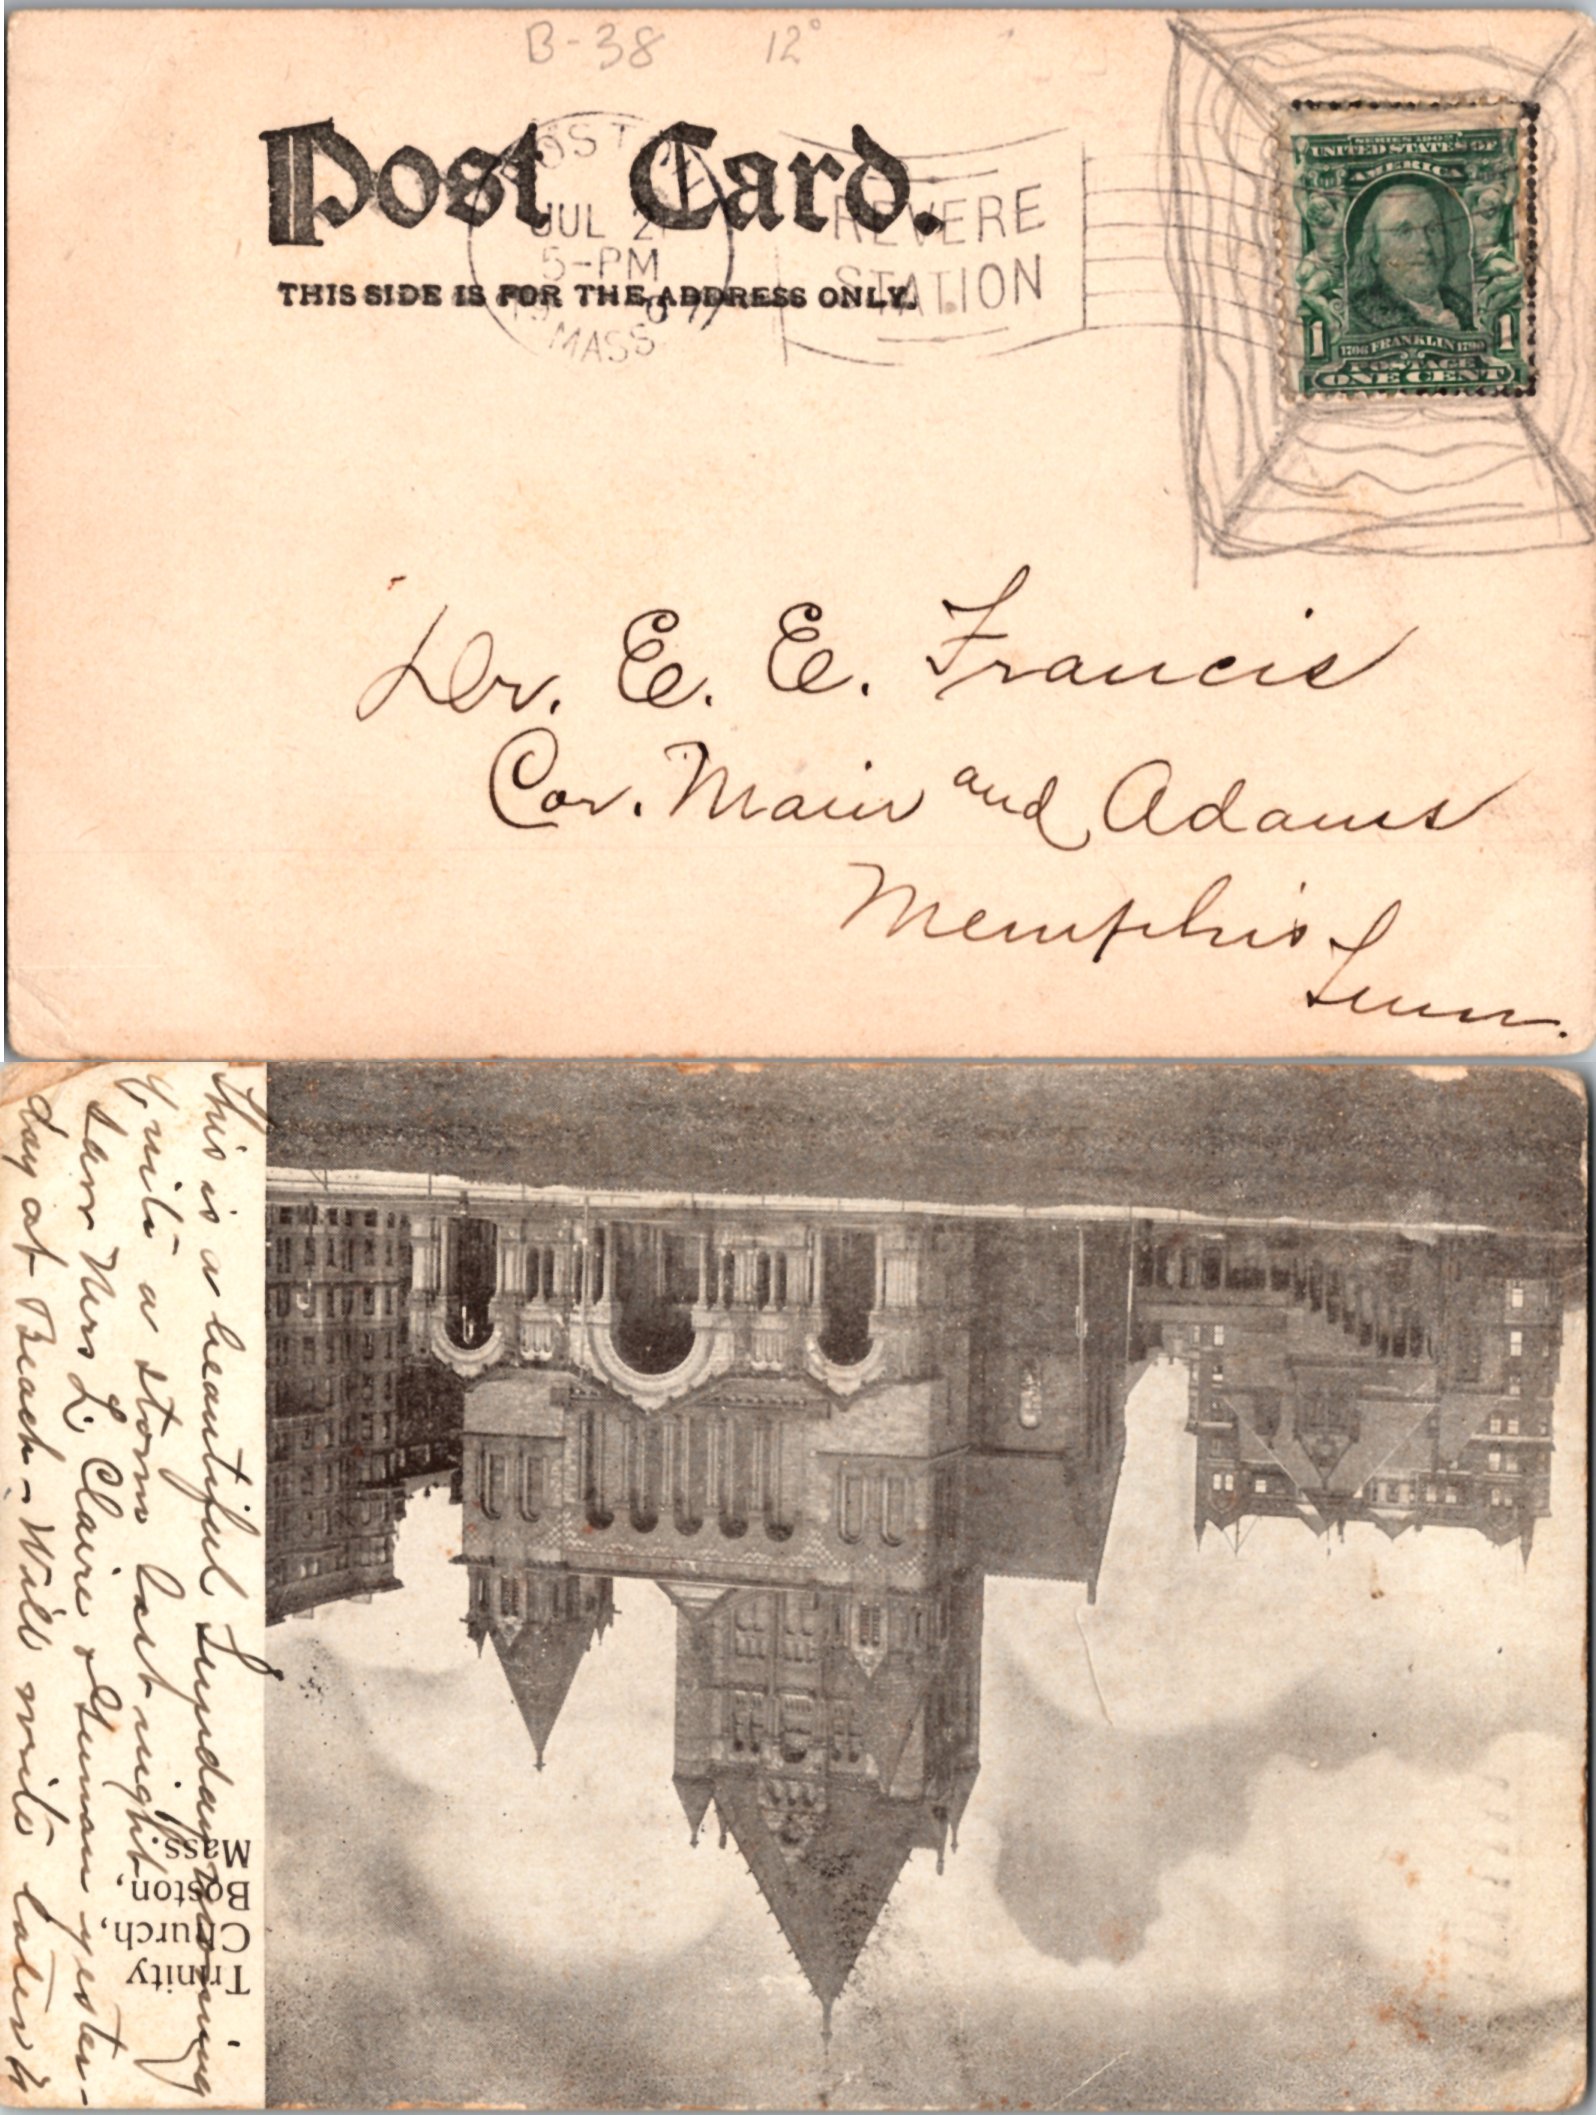 B-38 12°
Post Card.
THIS SIDE IS FOR THE ADDRESS ONLY.
BOST
JUL 21
5-PM
MASS
REVERE
STATION
SERIES 1902
UNITED STATES OF
AMERICA
1 1706 FRANKLIN 1790 1
POSTAGE
ONE CENT
Dr. E. E. Francis
Cor. Main and Adams
Memphis
Tenn.
This is a beautiful Sunday morning.
Quite a storm last night.
Saw Mrs L, Claire & Guman yester-
day at Beach - Will write later
Trinity
Church,
Boston,
Mass